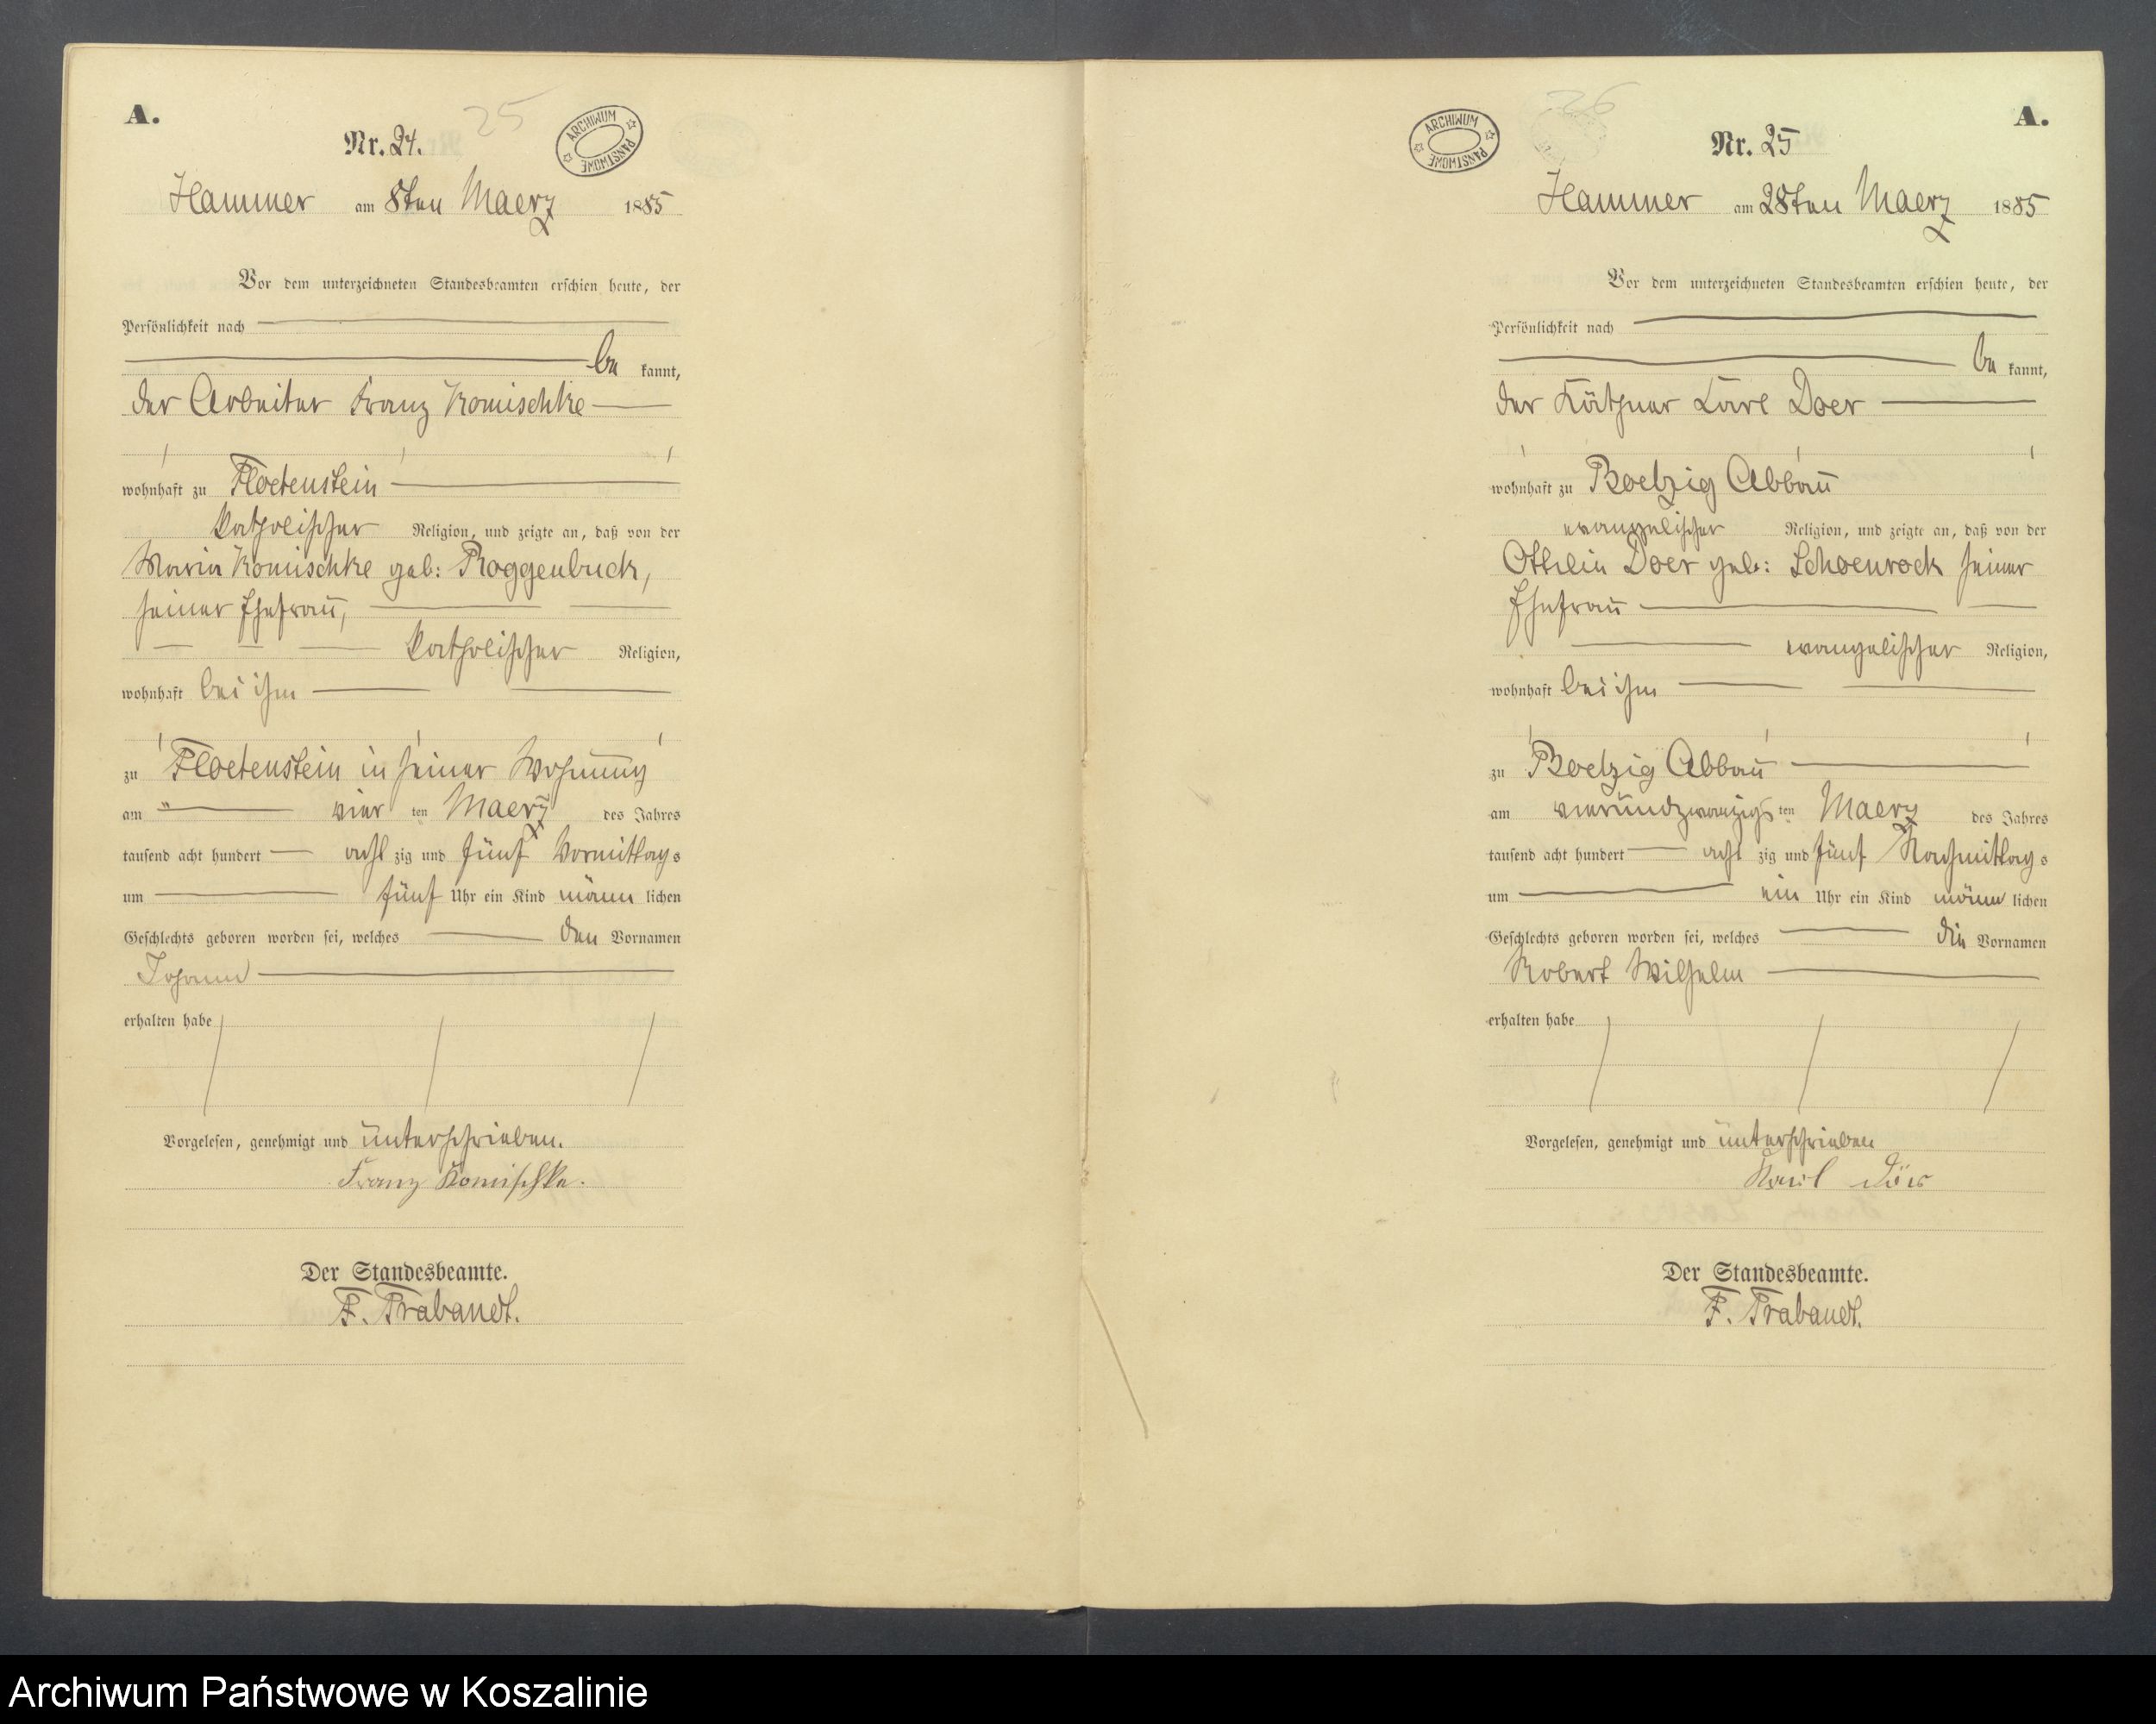 A.
25
Nr. 24.
ARCHIWUM PAŃSTWOWE
Hammer am 8ten Maerz 1885
Vor dem unterzeichneten Standesbeamten erschien heute, der
Persönlichkeit nach
be kannt,
der Arbeiter Franz Komischke
wohnhaft zu Floetenstein
katholischer Religion, und zeigte an, daß von der
Maria Komischke geb: Roggenbuck,
seiner Ehefrau,
katholischer Religion,
wohnhaft bei ihm
zu Floetenstein in seiner Wohnung
am vier ten Maerz des Jahres
tausend acht hundert acht zig und fünf Vormittags
um fünf Uhr ein Kind männ lichen
Geschlechts geboren worden sei, welches den Vornamen
Johann
erhalten habe
Vorgelesen, genehmigt und unterschrieben.
Franz Komischke.
Der Standesbeamte.
F. Trabandt.
A.
26
Nr. 25
ARCHIWUM PAŃSTWOWE
Hammer am 28ten Maerz 1885
Vor dem unterzeichneten Standesbeamten erschien heute, der
Persönlichkeit nach
be kannt,
der Käthner Karl Doer
wohnhaft zu Poelzig Abbau
evangelischer Religion, und zeigte an, daß von der
Ottilie Doer geb: Schoenrock seiner
Ehefrau
evangelischer Religion,
wohnhaft bei ihm
zu Poelzig Abbau
am vierundzwanzigs ten Maerz des Jahres
tausend acht hundert acht zig und fünf Nachmittags
um ein Uhr ein Kind männ lichen
Geschlechts geboren worden sei, welches die Vornamen
Robert Wilhelm
erhalten habe
Vorgelesen, genehmigt und unterschrieben
Karl Dör
Der Standesbeamte.
F. Trabandt.
Archiwum Państwowe w Koszalinie